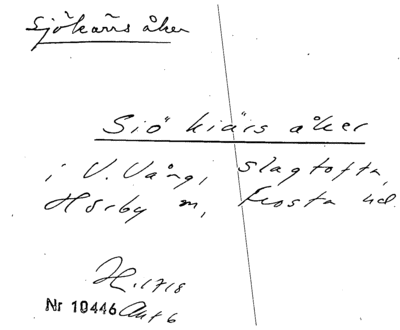 Sjökärrs åker
Siö kiärs åker
i V. Vång, Slagtofta,
Hörby m, Frosta hd.
H. 1718
Nr 10446 Akt 6